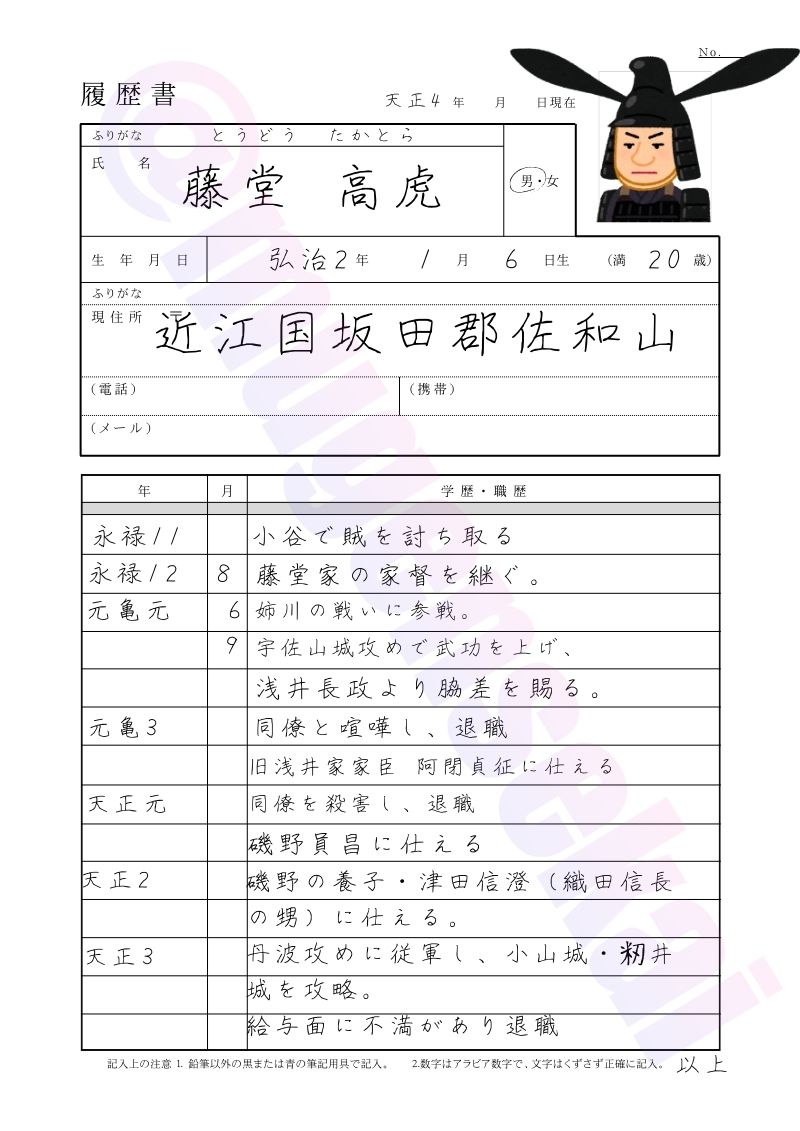 No.
履歴書
天正4 年 月 日現在
ふりがな とうどう たかとら
氏 名 藤堂 高虎
男・女
生 年 月 日 弘治2年 1月 6日生 (満 20歳)
ふりがな
現住所 〒 近江国坂田郡佐和山
（電話） （携帯）
（メール）
年 月 学歴・職歴
永禄11 小谷で賊を討ち取る
永禄12 8 藤堂家の家督を継ぐ。
元亀元 6 姉川の戦いに参戦。
9 宇佐山城攻めで武功を上げ、
浅井長政より脇差を賜る。
元亀3 同僚と喧嘩し、退職
旧浅井家家臣 阿閉貞征に仕える
天正元 同僚を殺害し、退職
磯野員昌に仕える
天正2 磯野の養子・津田信澄（織田信長
の甥）に仕える。
天正3 丹波攻めに従軍し、小山城・籾井
城を攻略。
給与面に不満があり退職
記入上の注意 1. 鉛筆以外の黒または青の筆記用具で記入。 2.数字はアラビア数字で、文字はくずさず正確に記入。
以上
@mugensekai